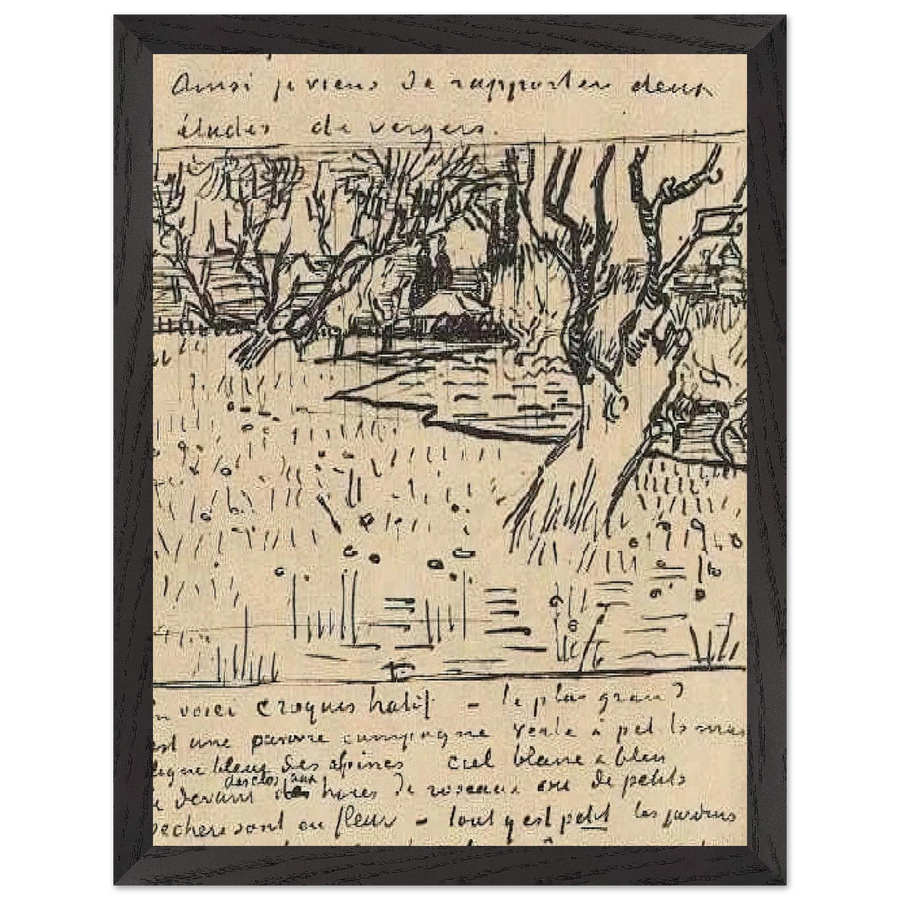 Ainsi je viens de rapporter deux
études de vergers.
En voici croquis hatif – le plus grand
est une pauvre campagne verte à petits mas
ligne bleue des alpines ciel blanc & bleu
Le devant des clos aux haies de roseaux ou de petits
pechers sont en fleur – tout y est petit les jardins